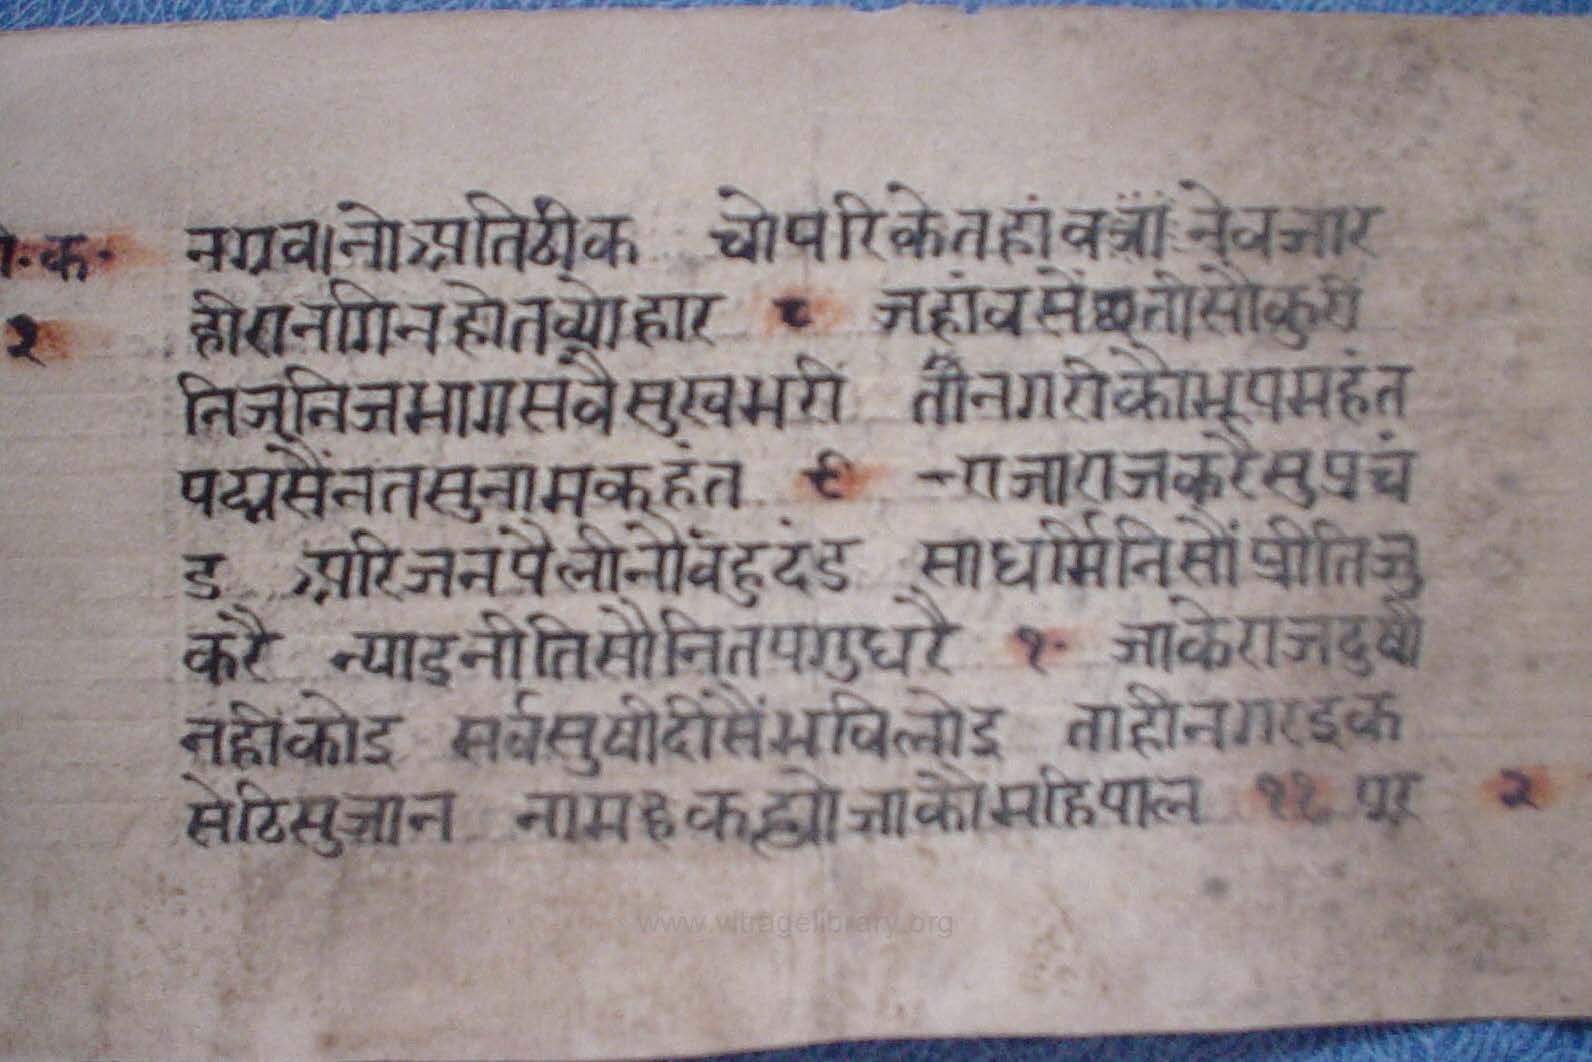 नग्रवानो अति ठीक चोपरि केतहां वन्यां नेवजार
हीरा नगिन होत व्योहार ८ जहां वसें छतीसौ कुरी
निज निज भाग सवै सुख भरी तीं नगरी कौ भूप महंत
पद्मसैंन तसु नाम कहंत ९ राजा राज करै सु प्रचं
ड अरि जन पै लीनौ वहु दंड साधर्मिनि सौं प्रीति जु
करै न्याइ नीति सौ नित पगु धरै १० जाके राज दुषी
नहीं कोइ सर्व सुषी दीसैं भवि लोइ ताही नगर इक
सेठि सुजान नाम कह्यो जाकौ महिपाल ११ पुर
क॰
२
२
www.vitragelibrary.org